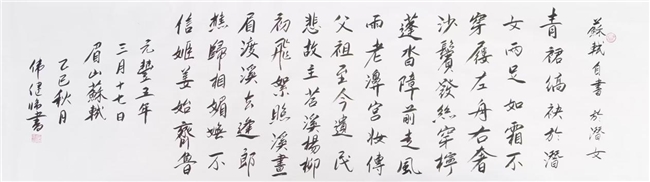 蘇軾自書 於潛女
青裙縞袂於潛
女兩足如霜不
穿屨左舟右奢
沙鬢發絲穿檸
蓬沓障前走風
雨老濞宮妝傳
父祖至今遺民
悲故主苕溪楊柳
初飛絮照溪畫
眉渡溪去逢郎
樵歸相媚嫵不
信姬姜始齊魯
元豐五年
三月十七日
眉山蘇軾
乙巳秋月
伟書